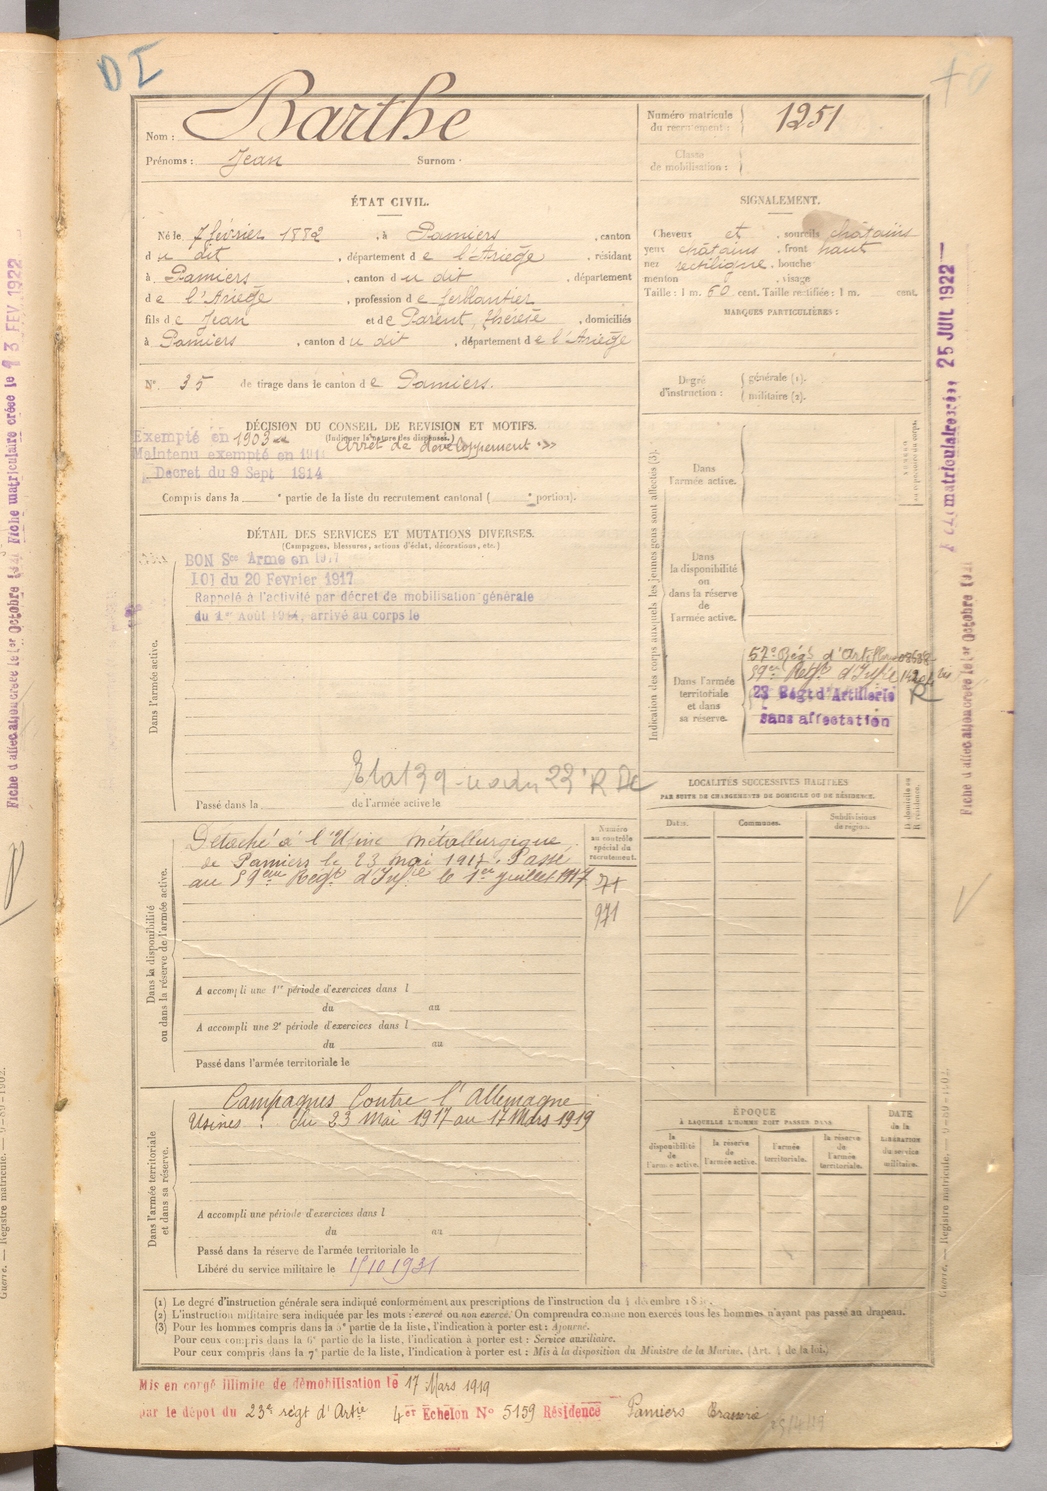 DI
Nom : Barthe
Prénoms : Jean Surnom ·
Numéro matricule
du recrutement :
1251
Classe
de mobilisation :
ÉTAT CIVIL.
Né le 7 février 1882, à Pamiers, canton
du dit, département de l'Ariège, résidant
à Pamiers, canton du dit, département
de l'Ariège, profession de ferblantier
fils de Jean et de Parent, Thérèse, domiciliés
à Pamiers, canton du dit, département de l'Ariège
N° 35 de tirage dans le canton de Pamiers.
SIGNALEMENT.
Cheveux et sourcils châtains
yeux châtains, front haut
nez rectiligne, bouche
menton, visage
Taille : 1 m. 60 cent. Taille rectifiée : 1 m. cent.
MARQUES PARTICULIÈRES :
Degré
d'instruction :
générale (1).
militaire (2).
DÉCISION DU CONSEIL DE REVISION ET MOTIFS.
(Indiquer la nature des dispenses.)
Exempté en 1903 arrêt de développement
Maintenu exempté en 191
Decret du 9 Sept 1914
Compris dans la ° partie de la liste du recrutement cantonal ( ° portion).
DÉTAIL DES SERVICES ET MUTATIONS DIVERSES.
(Campagnes, blessures, actions d'éclat, décorations, etc.)
Dans l'armée active.
BON Sce Armé en 1917
LOI du 20 Fevrier 1917
Rappelé à l'activité par décret de mobilisation générale
du 1er Août 1914, arrivé au corps le
Passé dans la de l'armée active le
Indication des corps auxquels les jeunes gens sont affectés (3).
Dans
l'armée active.
Dans
la disponibilité
ou
dans la réserve
de
l'armée active.
Dans l'armée
territoriale
et dans
sa réserve.
57e Régt d'Artillerie
59e Regt d'Infie
23 Régt d'Artillerie
sans affectation
R
LOCALITÉS SUCCESSIVES HABITÉES
PAR SUITE DE CHANGEMENTS DE DOMICILE OU DE RÉSIDENCE.
Dates. Communes. Subdivisions
de région. D domicile ou
R résidence.
Dans la disponibilité
ou dans la réserve de l'armée active.
Détaché à l'Usine métallurgique
de Pamiers le 23 mai 1917. Passé
au 59ème Regt d'Infie le 1er juillet 1917
Numéro
au contrôle
spécial du
recrutement.
71
971
A accompli une 1re période d'exercices dans l
du au
A accompli une 2e période d'exercices dans l
du au
Passé dans l'armée territoriale le
Dans l'armée territoriale
et dans sa réserve.
Campagnes Contre l'Allemagne
Usines : du 23 Mai 1917 au 17 Mars 1919
A accompli une période d'exercices dans l
du au
Passé dans la réserve de l'armée territoriale le
Libéré du service militaire le 15 10 1931
ÉPOQUE
À LAQUELLE L'HOMME DOIT PASSER DANS
la
disponibilité
de
l'armée active.
la réserve
de
l'armée active.
l'armée
territoriale.
la réserve
de
l'armée
territoriale.
DATE
de la
LIBÉRATION
du service
militaire.
(1) Le degré d'instruction générale sera indiqué conformément aux prescriptions de l'instruction du décembre 18
(2) L'instruction militaire sera indiquée par les mots : exercé ou non exercé. On comprendra comme non exercés tous les hommes n'ayant pas passé au drapeau.
(3) Pour les hommes compris dans la 5e partie de la liste, l'indication à porter est : Ajourné.
Pour ceux compris dans la 6e partie de la liste, l'indication à porter est : Service auxiliaire.
Pour ceux compris dans la 7e partie de la liste, l'indication à porter est : Mis à la disposition du Ministre de la Marine. (Art. 4 de la loi.)
Mis en congé illimité de démobilisation le 17 Mars 1919
par le dépôt du 23e régt d'Artie 4er Echelon N° 5159 Résidence Pamiers Brasserie
Fiche d'affectation créée le 1er Octobre Fiche matriculaire créée le 13 FEV. 1922
Fiche d'affectation créée le 1er Octobre matriculaire créée 25 JUIL 1922
Guerre. — Registre matricule. — 9-89-1902.
Guerre. — Registre matricule. — 9-89-1902.